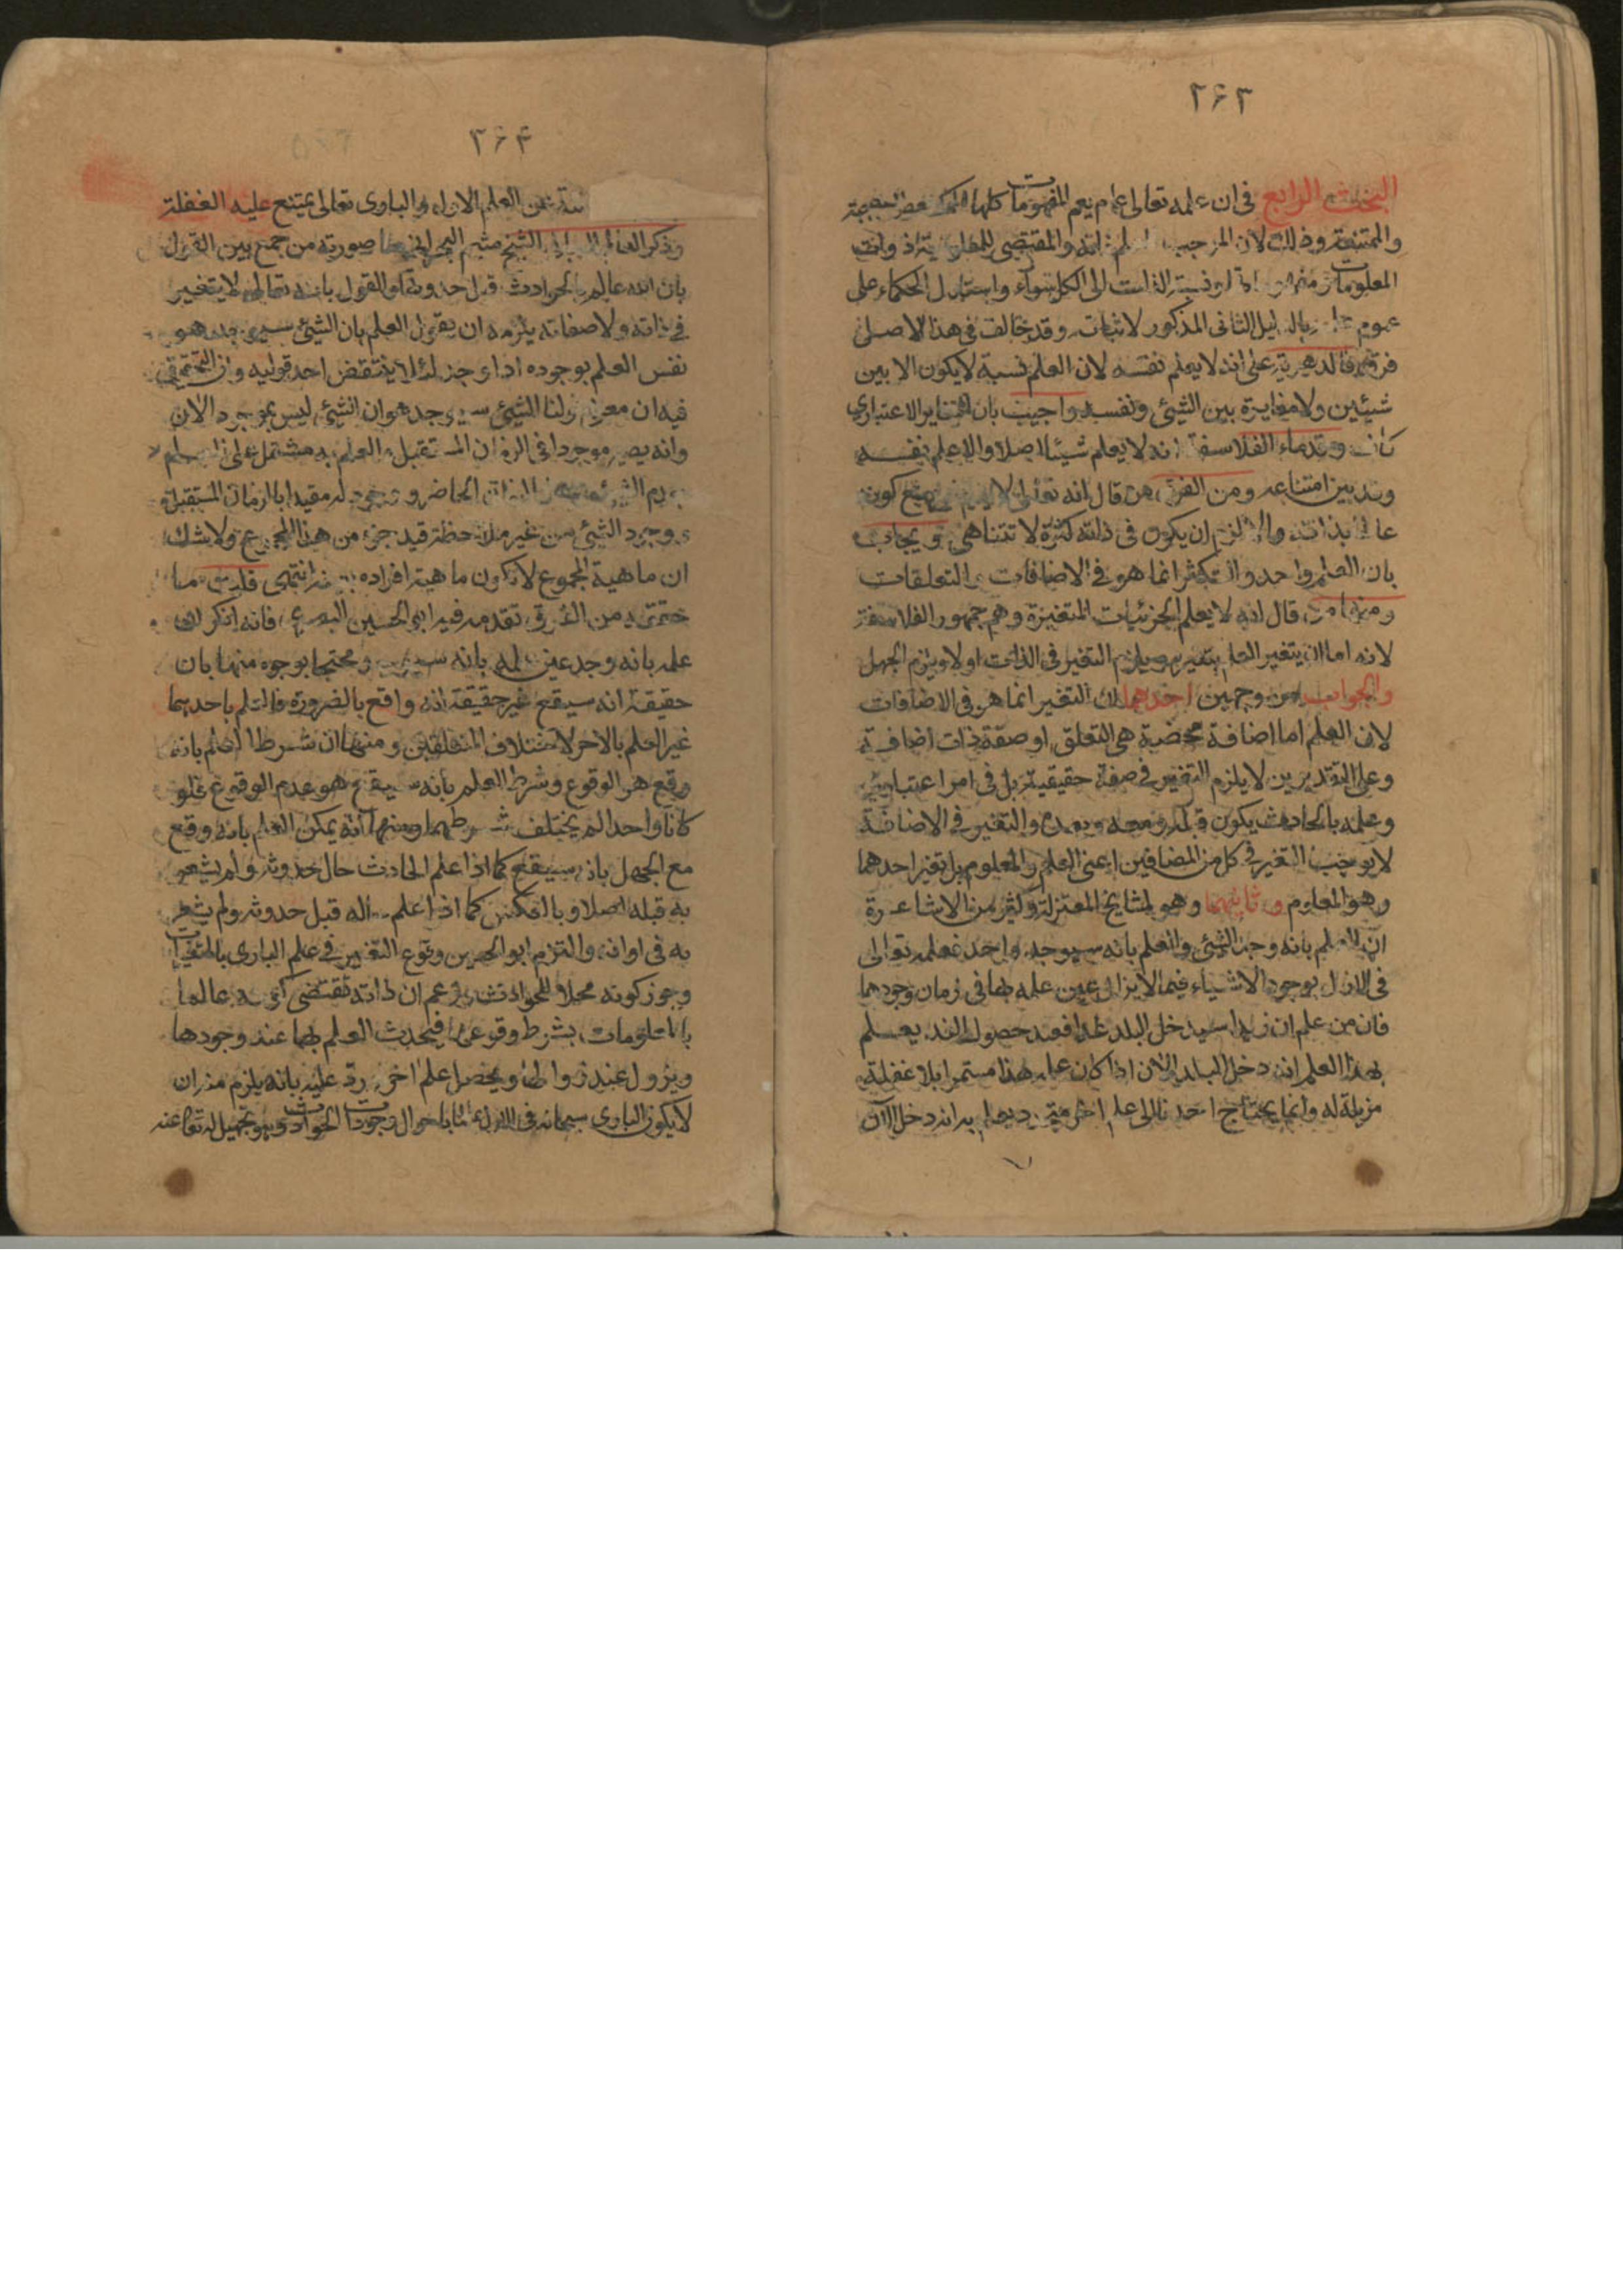 ٢۶٣
البحث الرابع في ان علمه تعالى عام يعم المفهومات كلها الممكنة
والممتنعة وذلك لان الموجب للعلم ذاته والمقتضى للمعلومية ذوات
المعلومات ونسبة الذات الى الكل سواء واستدل الحكماء على
عموم بالدليل الثانى المذكور لاثبات وقد خالف في هذا الاصل
فرق فالدهرية على انه لا يعلم نفسه لان العلم نسبة لا يكون الا بين
شيئين ولا مغايرة بين الشيئ ونفسه واجيب بان التغاير الاعتباري
كاف وقدماء الفلاسفة انه لا يعلم شيئا اصلا والا علم نفسه
وقد بين امتناعه ومن الفرق من قال انه تعالى لا يعلم كونه
عالما بذاته والا لزم ان يكون في ذاته كثرة لا تتناهى ويجاب
بان العلم واحد والتكثر انما هو في الاضافات والتعلقات
ومنهم من قال انه لا يعلم الجزئيات المتغيرة وهم جمهور الفلاسفة
لانه اما ان يتغير العلم بتغيره ويلزم التغير في الذات او لا ويلزم الجهل
والجواب من وجهين احدهما ان التغير انما هو في الاضافات
لان العلم اما اضافة محضة هى التعلق او صفة ذات اضافة
وعلى التقديرين لا يلزم التغير في صفة حقيقية بل في امر اعتباري
وعلمه بالحادث يكون قبله ومعه وبعده والتغير في الاضافة
لا يوجب التغير في كل من المضافين اعنى العلم والمعلوم بل تغير احدهما
وهو المعلوم وثانيهما وهو لمشايخ المعتزلة وكثير من الاشاعرة
ان العلم بانه وجد الشيئ والعلم بانه سيوجد واحد فعلمه تعالى
في الازل بوجود الاشياء فيما لا يزال عين علمه بها في زمان وجودها
فان من علم ان زيدا سيدخل البلد غدا فعند حصول الغد يعلم
بهذا العلم انه دخل البلد الان اذا كان علمه هذا مستمرا بلا غفلة
مزيلة له وانما يحتاج احدنا الى علم اخر يعلم به انه دخل الان
٢۶۴
عن العلم الاول والبارى تعالى يمتنع عليه الغفلة
وذكر العالم الربانى الشيخ ميثم البحرانى ما صورته من جمع بين القول
بان الله عالم بالحوادث قبل حدوثها والقول بانه تعالى لا يتغير
في ذاته ولا صفاته يلزمه ان يقول العلم بان الشيئ سيوجد هو
نفس العلم بوجوده اذا وجد لئلا ينتقض احد قوليه والتحقيق
فيه ان معنى قولنا الشيئ سيوجد هو ان الشيئ ليس بموجود الان
وانه يصير موجودا في الزمان المستقبل والعلم به مشتمل على العلم
بعدم الشيئ في الزمان الحاضر وبوجوده مقيدا بالزمان المستقبل
ووجود الشيئ من غير ملاحظة قيد جزء من هذا المجموع ولا شك
ان ماهية المجموع لا تكون ماهية افراده انتهى قلت ما
حققه من الفرق تقدمه فيه ابو الحسين البصري فانه انكر ان
علمه بانه وجد عين علمه بانه سيوجد ومحتجا بوجوه منها بان
حقيقة انه سيقع غير حقيقة انه واقع بالضرورة فالعلم باحدهما
غير العلم بالاخر لاختلاف المتعلقين ومنها ان شرط العلم بانه
وقع هو الوقوع وشرط العلم بانه سيقع هو عدم الوقوع فلو
كانا واحدا لم يختلف شرطهما ومنها انه يمكن العلم بانه وقع
مع الجهل بانه سيقع كما اذا علم الحادث حال حدوثه ولم يشعر
به قبله اصلا وبالعكس كما اذا علم حاله قبل حدوثه ولم يشعر
به في اوانه والتزم ابو الحسين وقوع التغير في علم البارى بالمتغيرات
وجوز كونه محلا للحوادث وزعم ان ذاته تقتضى كونه عالما
بالمعلومات بشرط وقوعها فيحدث العلم بها عند وجودها
ويزول عند زوالها ويحصل علم اخر رد عليه بانه يلزم منه ان
لا يكون البارى سبحانه في الازل عالما باحوال وجودات الحوادث وهو تجهيل له تعالى عنه